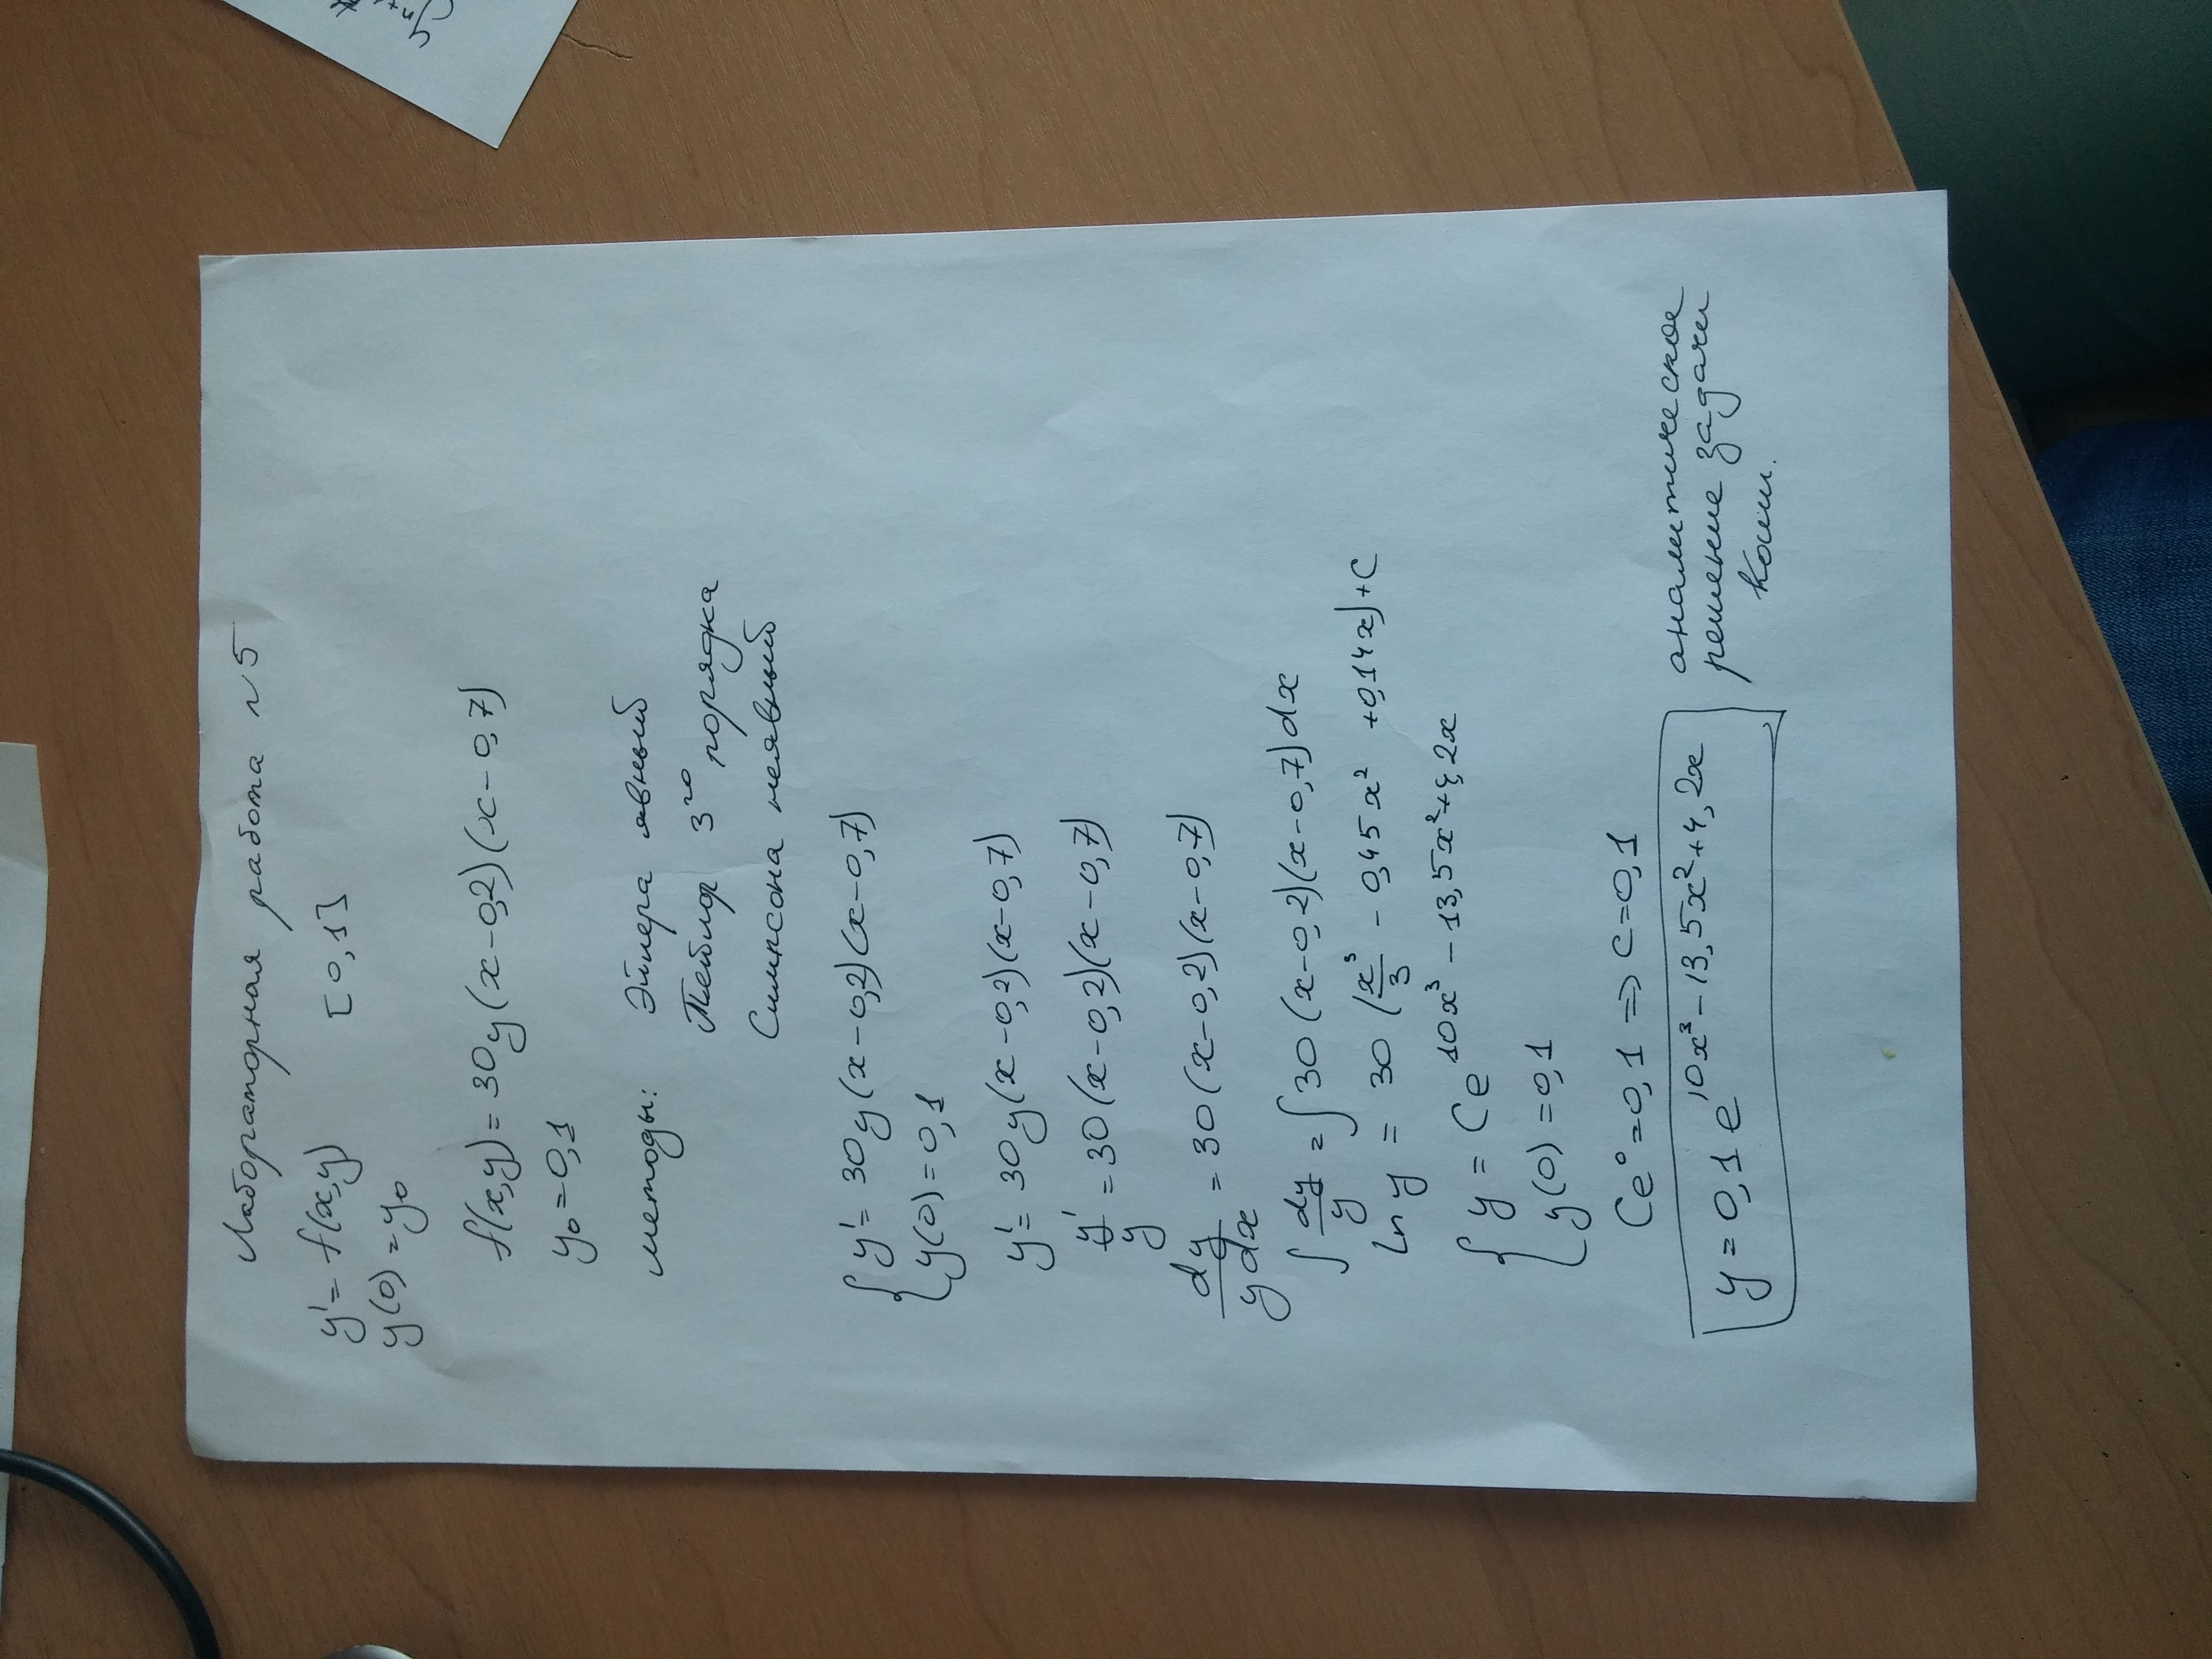 Лабораторная работа №5
y' = f(x,y) [0,1]
y(0) = y₀
f(x,y) = 30y(x-0,2)(x-0,7)
y₀ = 0,1
методы: Эйлера явный
Тейлор 3го порядка
Симпсона неявный
{ y' = 30y(x-0,2)(x-0,7)
y(0) = 0,1
y' = 30y(x-0,2)(x-0,7)
y'/y = 30(x-0,2)(x-0,7)
dy/ydx = 30(x-0,2)(x-0,7)
∫ dy/y = ∫ 30(x-0,2)(x-0,7)dx
ln y = 30 (x³/3 - 0,45x² + 0,14x) + C
{ y = Ce^(10x³ - 13,5x² + 4,2x)
y(0) = 0,1
Ce⁰ = 0,1 => C = 0,1
y = 0,1 e^(10x³ - 13,5x² + 4,2x)
аналитическое
решение задачи
Коши.
yₙ₊